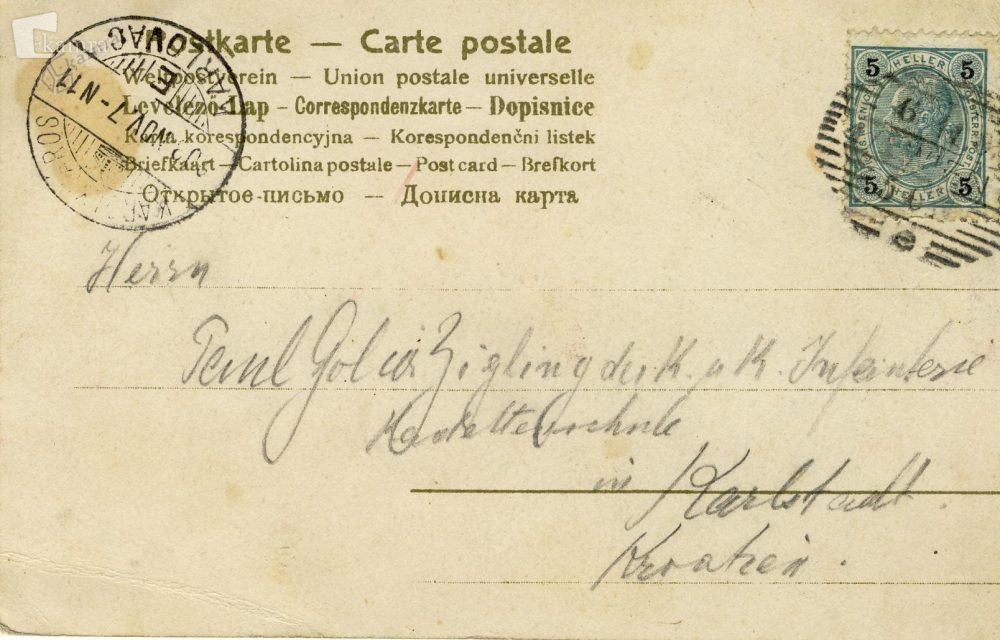 Postkarte — Carte postale
Weltpostverein — Union postale universelle
Levelező-Lap – Correspondenzkarte – Dopisnice
Karta korespondencyjna – Korespondenční listek
Briefkaart – Cartolina postale – Post card – Brefkort
Открытое письмо — Дописна карта
KARLOVAC
NOV. 7 - N 11
5 HELLER 5
5 HELLER 5
Herrn
Paul Zögling der K. u K. Infanterie
Kadettenschule
in Karlstadt.
Kroatien.